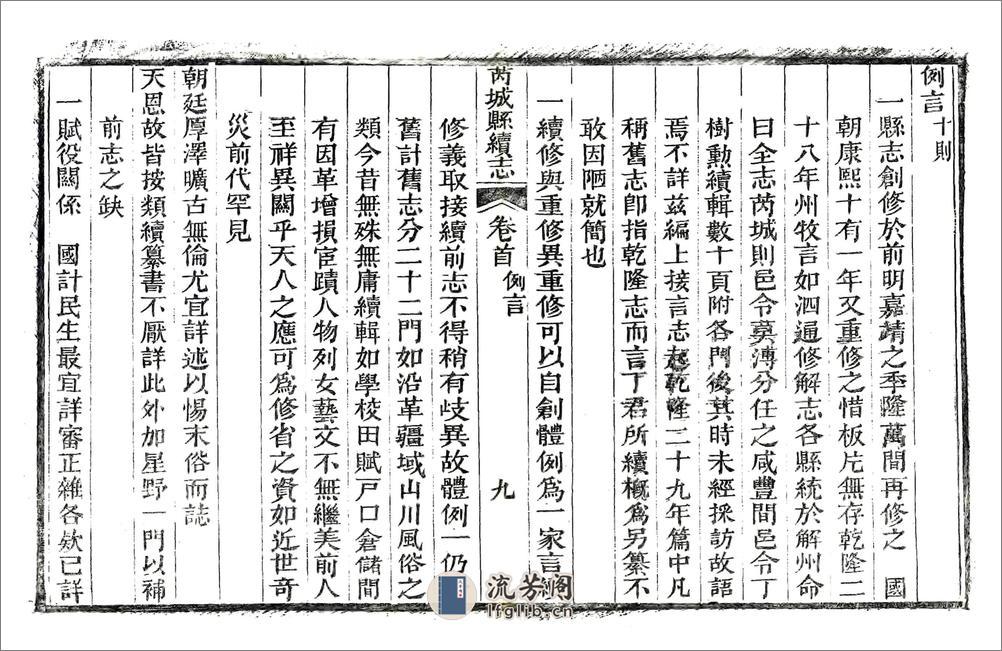 例言十則
一縣志創修於前明嘉靖之季隆萬間再修之　國
朝康熙十有一年又重修之惜板片無存乾隆二
十八年州牧言如泗通修解志各縣統於解州命
曰全志芮城則邑令莫溥分任之咸豐間邑令丁
樹勲續輯數十頁附各門後其時未經採訪故語
焉不詳兹編上接言志起乾隆二十九年篇中凡
稱舊志卽指乾隆志而言丁君所續概爲另纂不
敢因陋就簡也
一續修與重修異重修可以自創體例爲一家言
芮城縣續志　卷首　例言　九
修義取接續前志不得稍有歧異故體例一仍
舊計舊志分二十二門如沿革疆域山川風俗之
類今昔無殊無庸續輯如學校田賦戸口倉儲間
有因革增損宦蹟人物列女藝文不無繼美前人
至祥異關乎天人之應可爲修省之資如近世奇
災前代罕見
朝廷厚澤曠古無倫尤宜詳述以惕末俗而誌
天恩故皆按類續纂書不厭詳此外加星野一門以補
前志之缺
一賦役關係　國計民生最宜詳審正雜各欵已詳
流芳阁
lfglib.cn